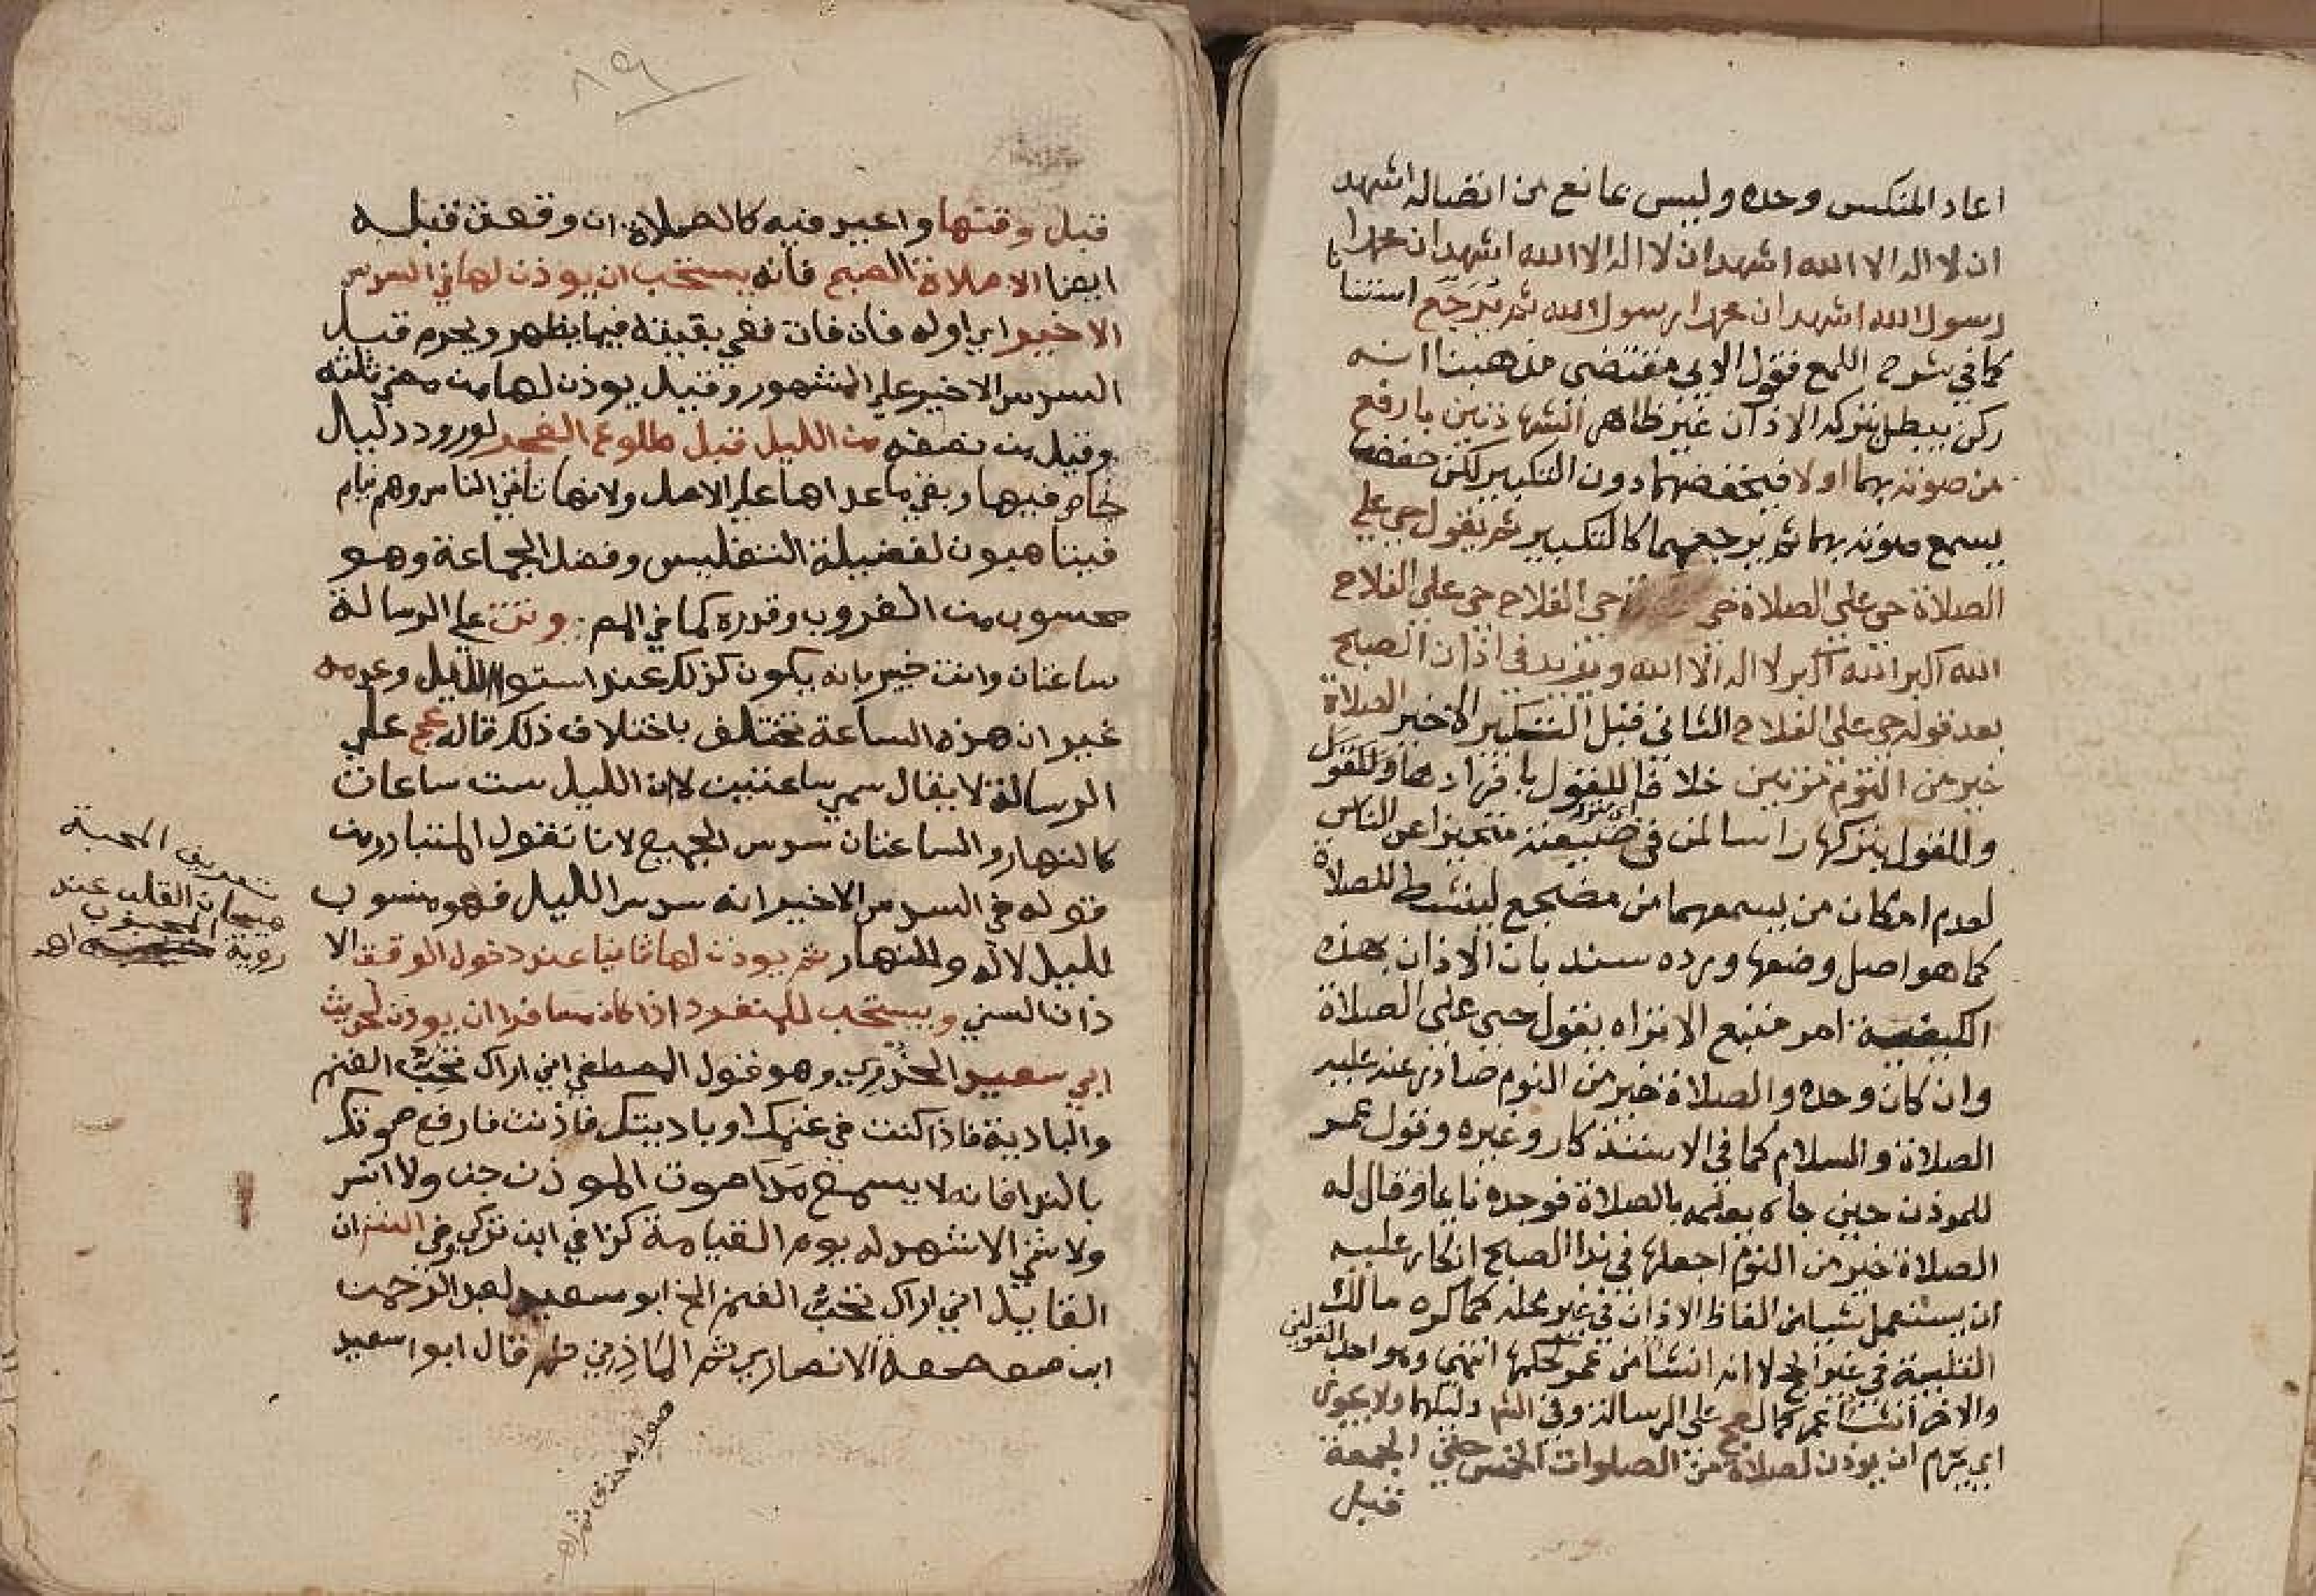 اعاد المنكس وحده وليس بمانع من اتصاله اشهد
ان لا اله الا الله اشهد ان لا اله الا الله اشهد ان محمدا
رسول الله اشهد ان محمدا رسول الله ثم يُرَجّع استنانا
كما في شرح اللمع فقول الابي مقتضى مذهبنا انه
ركن يبطل بتركه الاذان غير ظاهر الشهادتين بارفع
من صوته بهما اولا فيخفضهما دون التكبير لكن خفضهما
يسمع صوته بهما ثم يرجعهما كالتكبير ثم يقول حي على
الصلاة حي على الصلاة حي الفلاح حي على الفلاح
الله اكبر الله اكبر لا اله الا الله ويزيد في اذان الصبح
بعد قوله حي على الفلاح الثاني قبل التكبير الاخير الصلاة
خير من النوم مرتين خلافا للقول بافرادها وللقول
والقول بتركها راسا لمن في ضيعته متحيزا عن الناس
لعدم امكان من يسمعهما من مضجع لينشط للصلاة
كما هو اصل وضعها ورده سند بان الاذان بهذه
الكيفية امر متبع الا تراه يقول حي على الصلاة
وان كان وحده والصلاة خير من النوم صادر عنه عليه
الصلاة والسلام كما في الاستذكار وغيره وقول عمر
للموذن حين جاه يعلمه بالصلاة فوجده نايما وقال له
الصلاة خير من النوم اجعلها في ندا الصبح انكار عليه
ان يستعمل شيا من الفاظ الاذان في غير محله كما كره مالك
التلبية في غير الحج لا انه انشا من عمر لحكمها انتهى وهو احد القولين
والاخر انشا عمر كما لعج على الرسالة وفي الشم دليلهما ولا يجوز
اي يحرم ان يوذن لصلاة من الصلوات الخمس حتى الجمعة
قبل
٨٩
قبل وقتها واعيد فيه كالصلاة ان وقعت قبله
ايضا الا صلاة الصبح فانه يستحب ان يوذن لها في السدس
الاخير اي اوله فان فات ففي بقيته فيما يظهر ويحرم قبل
السدس الاخير على المشهور وقيل يوذن لها من مضي ثلثه
وقيل من نصفه من الليل قبل طلوع الفجر لورود دليل
خاص فيها وبقي ما عداها على الاصل ولانها تاتي الناس وهم نيام
فيتاهبون لفضيلة التغليس وفضل الجماعة وهو
محسوب من الغروب وقدره كما في الشم وتت على الرسالة
ساعتان وانت خبير بانه يكون كذلك عند استوا الليل وعدمه
غير ان هذه الساعة تختلف باختلاف ذلك قاله عج على
الرسالة لا يقال سمي ساعتين لان الليل ست ساعات
كالنهار والساعتان سدس الجميع لانا نقول المتبادر من
قوله في السدس الاخير انه سدس الليل فهو منسوب
لليل لا له وللنهار ثم يوذن لها ثانيا عند دخول الوقت الا
ذان السني ويستحب للمنفرد اذا كان مسافرا ان يوذن لحديث
ابي سعيد الخُدْري وهو قول المصطفى اني اراك تحب الغنم
والبادية فاذا كنت في غنمك او باديتك فاذنت فارفع صوتك
بالندا فانه لا يسمع مَدَا صوت الموذن جن ولا انس
ولا شي الا شهد له يوم القيامة كذا في ابن تركي وفي الفتح ان
القايل اني اراك تحب الغنم الخ ابو سعيد لعبد الرحمن
ابن صعصعة الانصاري ثم المازني ثم قال ابو سعيد
تعريف المحبة
هيجان القلب عند
روية المحبوب اهـ